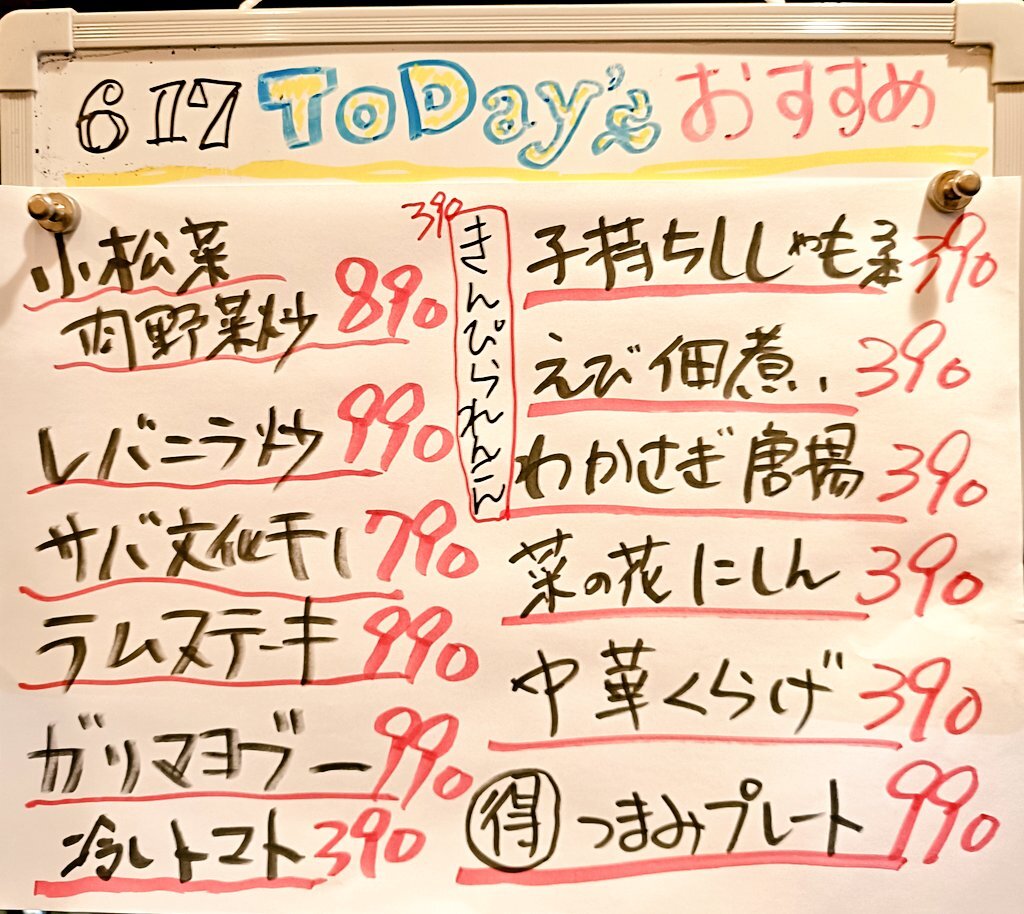 6 17 ToDay's おすすめ
小松菜
肉野菜炒 890
レバニラ炒 990
サバ文化干し 790
ラムステーキ 990
ガリマヨブー 990
冷しトマト 390
390
きんぴられんこん
子持ちししゃも 390
えび佃煮 390
わかさぎ唐揚 390
菜の花にしん 390
中華くらげ 390
得 つまみプレート 990